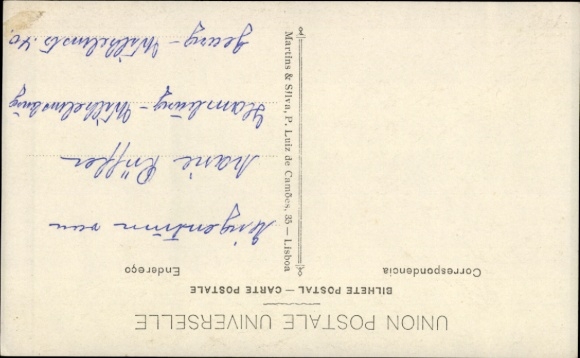 UNION POSTALE UNIVERSELLE
BILHETE POSTAL — CARTE POSTALE
Correspondencia
Endereço
Martins & Silva, P. Luiz de Camões, 35 — Lisboa
Eigentum von
Marie
Hamburg - Wilhelmsburg
Georg - Wilhelmstr. 40